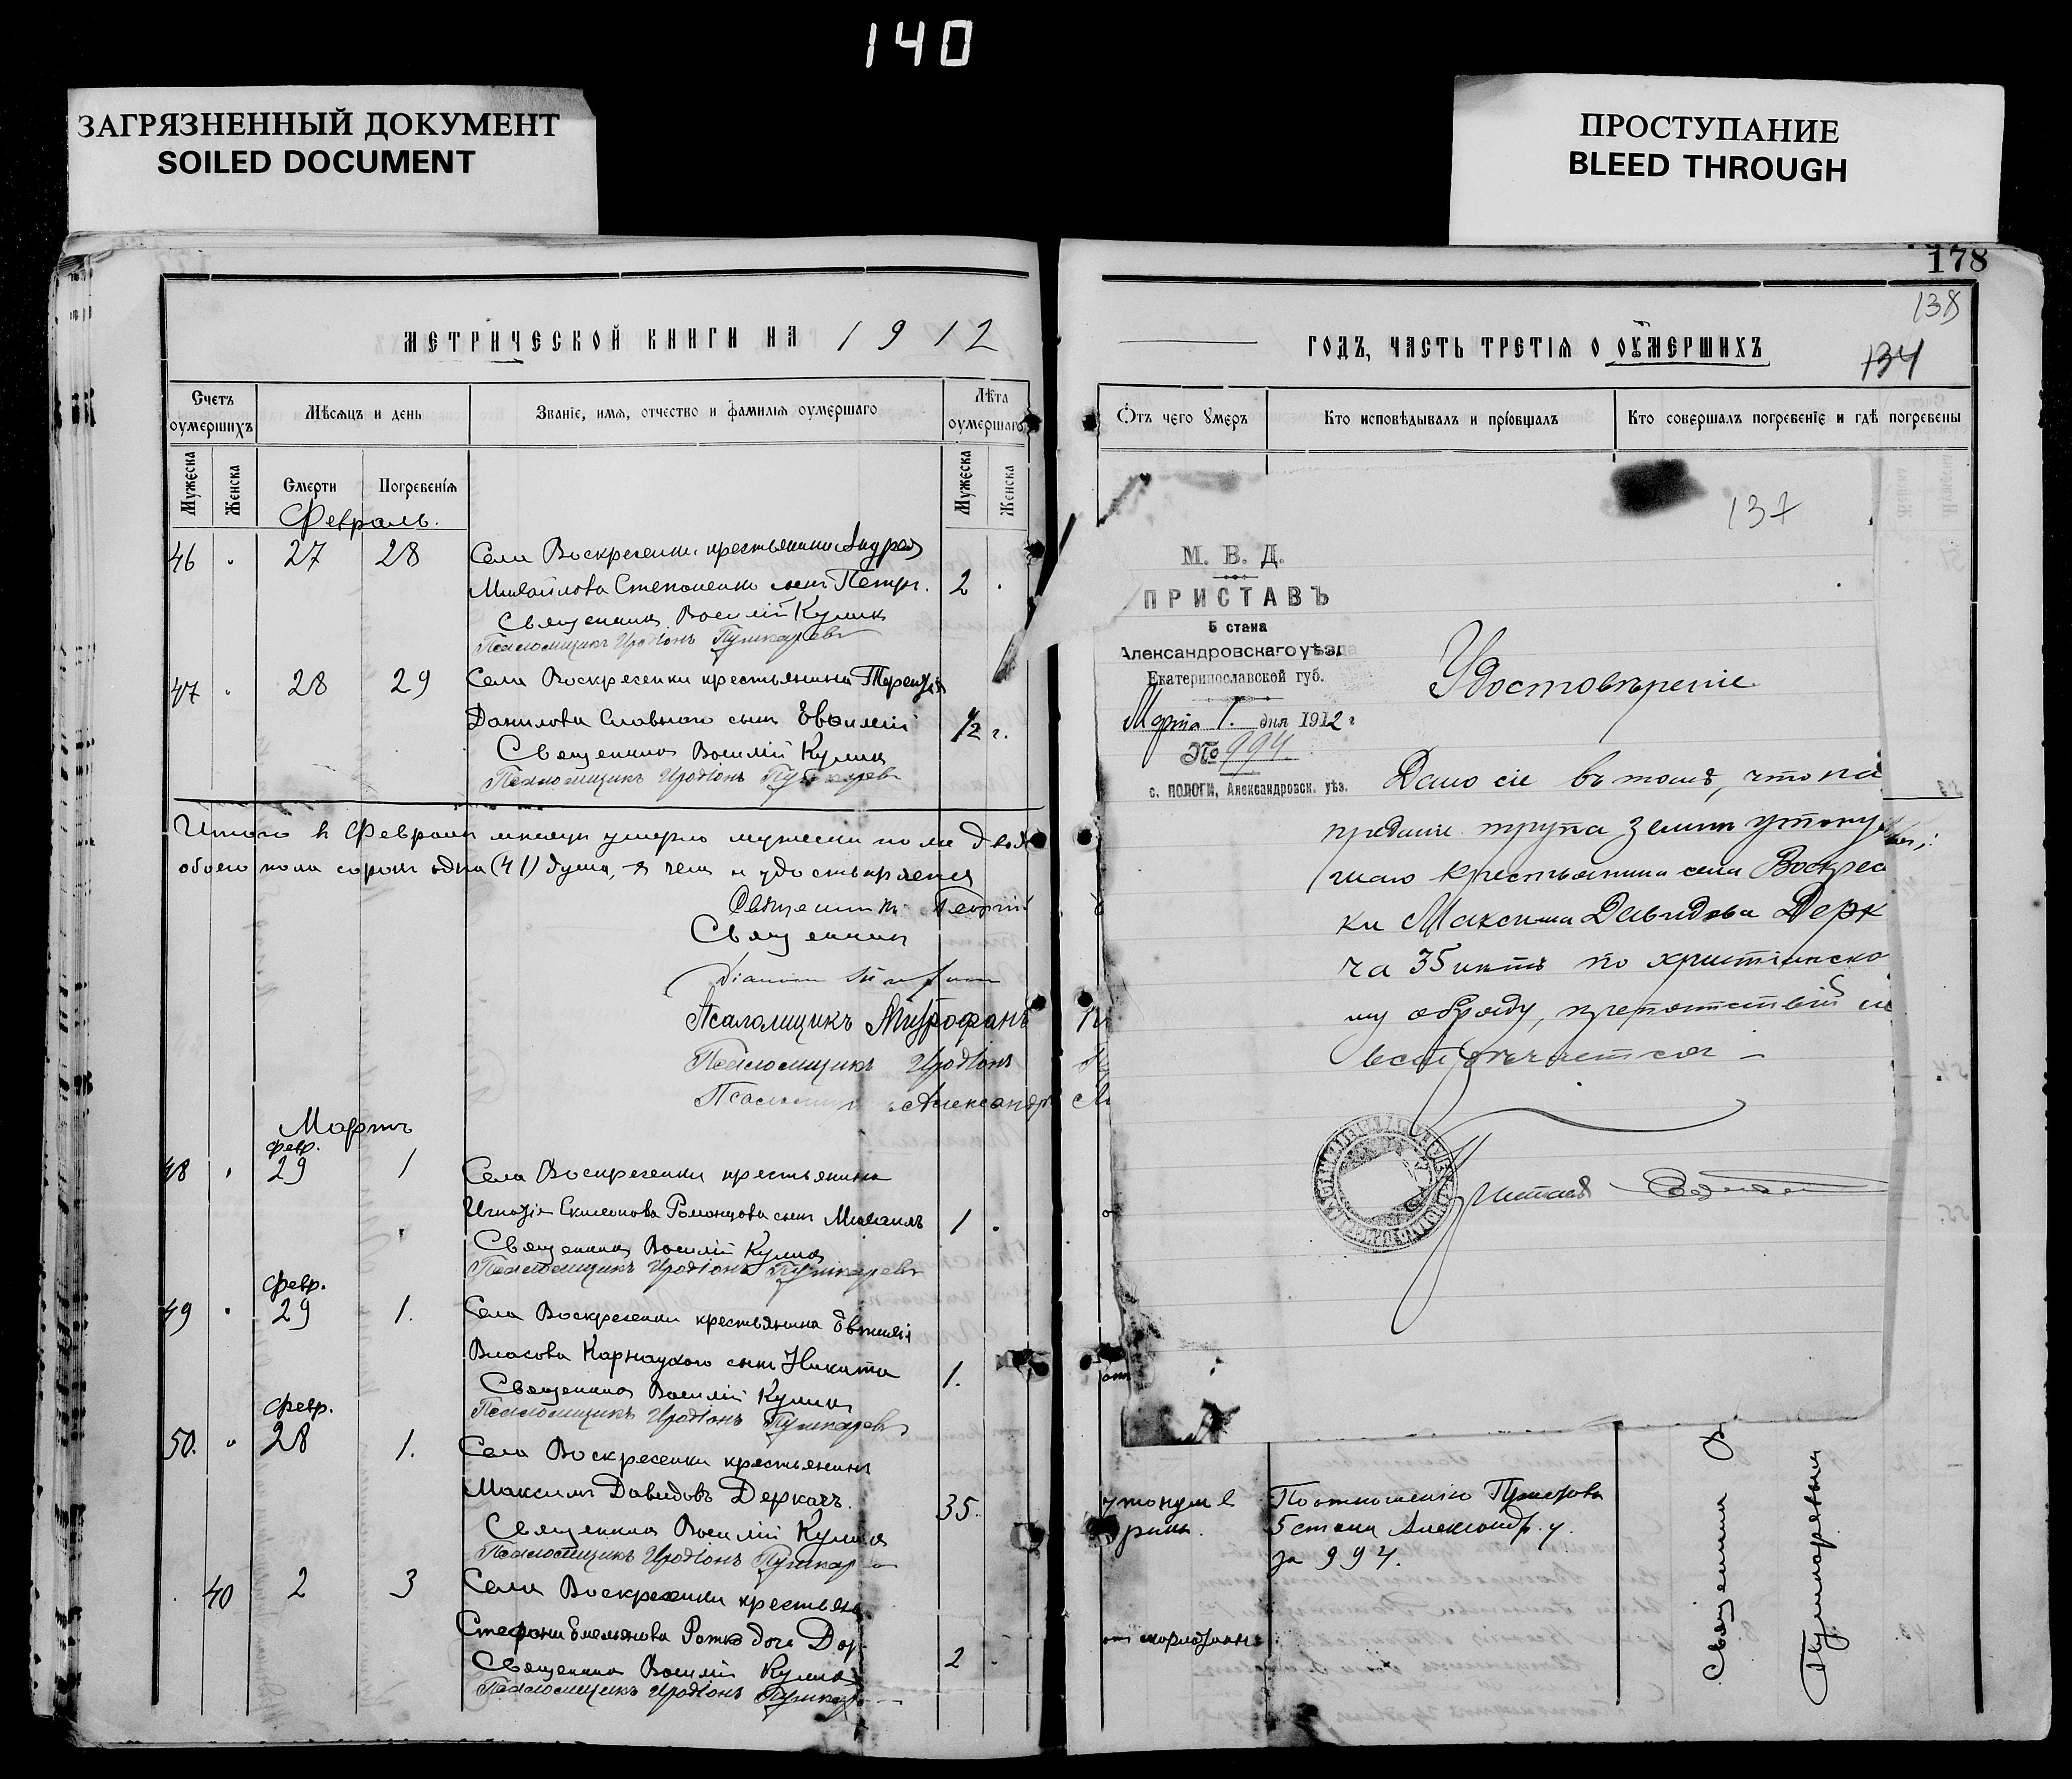 140
ЗАГРЯЗНЕННЫЙ ДОКУМЕНТ
SOILED DOCUMENT
ПРОСТУПАНИЕ
BLEED THROUGH
МЕТРИЧЕСКОЙ КНИГИ НА 1912
Счетъ оумершихъ
Мѣсяцъ и день
Званіе, имя, отчество и фамилія оумершаго
Лѣта оумершаго
Мужеска
Женска
Смерти
Погребенія
Мужеска
Женска
Февраль.
46 " 27 28 Села Воскресенки крестьянина Андрея
Михайлова Степаненко сынъ Петръ. 2
Священникъ Василій Куликъ
Псаломщикъ Иродіонъ Пушкаревъ
47 " 28 29 Села Воскресенки крестьянина Терентія
Данилова Славного сынъ Евѳимій 1/2 г.
Священникъ Василій Куликъ
Псаломщикъ Иродіонъ Пушкаревъ
Итого в Февралѣ мѣсяцѣ умерло мужеска пола
обоего пола сорокъ одна (41) душа, в чемъ и удостоверяемъ
Священникъ Георгій
Священникъ
Діаконъ
Псаломщикъ Митрофанъ
Псаломщикъ Иродіонъ
Псаломщикъ Александръ
Мартъ
февр.
48 " 29 1 Села Воскресенки крестьянина
Игнатія Симеонова Романцова сынъ Михаилъ 1
Священникъ Василій Куликъ
Псаломщикъ Иродіонъ Пушкаревъ
февр.
49 " 29 1. Села Воскресенки крестьянина Евѳимія
Власова Карнаухова сынъ Никита 1.
Священникъ Василій Куликъ
Псаломщикъ Иродіонъ Пушкаревъ
февр.
50. " 28 1. Села Воскресенки крестьянинъ
Максимъ Давидовъ Деркачъ. 35
Священникъ Василій Куликъ
Псаломщикъ Иродіонъ Пушкар
40 2 3 Села Воскресенки крестьян
Стефана Емельянова дочь 2
Священникъ Василій Куликъ
Псаломщикъ Иродіонъ Пушкар
178
138
134
ГОДЪ, ЧАСТЬ ТРЕТІЯ О ОУМЕРШИХЪ
Отъ чего умеръ
Кто исповѣдывалъ и пріобщалъ
Кто совершалъ погребеніе и гдѣ погребены
137
М. В. Д.
ПРИСТАВЪ
5 стана
Александровскаго уѣзда
Екатеринославской губ.
Марта 1. дня 1912 г
№ 994
с. ПОЛОГИ, Александровск. уѣз.
Удостовѣреніе
Дано сіе въ томъ, что на
преданіе трупа землѣ утону
шаго крестьянина села Воскресе
ки Максима Давидова Дерк
ча 35 лѣтъ по христіанско
му обряду, препятствій не
встрѣчается
Приставъ
утонул в
Поотношенію Пристава
5 стана Александр. у.
за 994.
Священникъ
Пушкаревъ